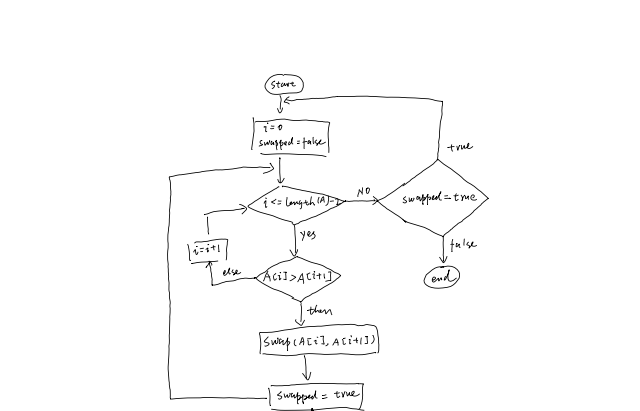 start
i=0
swapped=false
i<=length(A)-2
NO
swapped=true
true
false
end
yes
i=i+1
else
A[i]>A[i+1]
then
Swap(A[i],A[i+1])
swapped= true